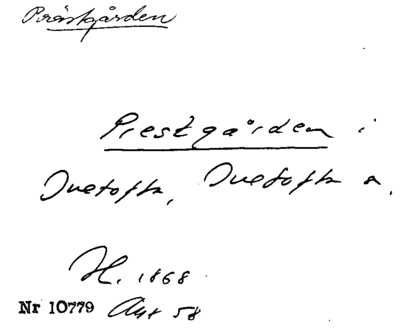 Prästgården
Prestgården i
Duetofta, Duetofta s.
H. 1868
Nr 10779 Ant 58